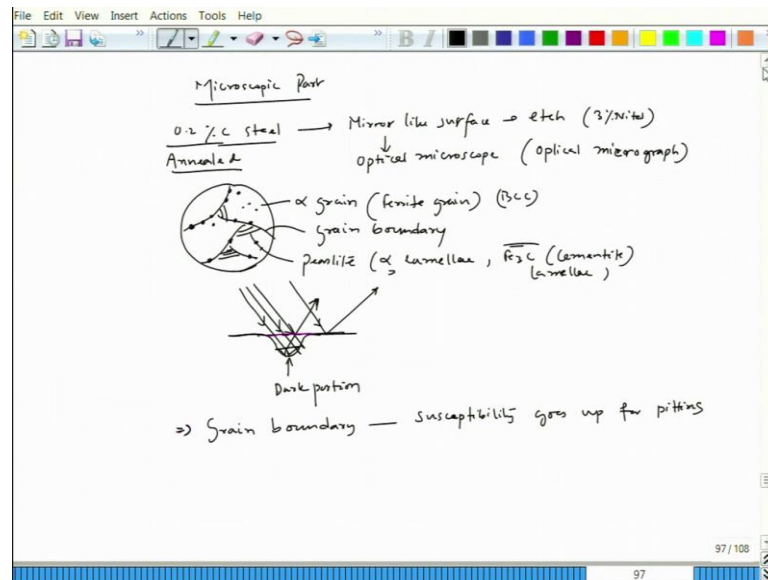 File Edit View Insert Actions Tools Help
» » B I
Microscopic Part
0.2 % C steel → Mirror like surface → etch (3% Nital)
Annealed
optical microscope (optical micrograph)
α grain (ferrite grain) (BCC)
grain boundary
pearlite (α lamellae, Fe3C (cementite)
lamellae,
Dark portion
⇒ Grain boundary — susceptibility goes up for pitting
97 / 108
97